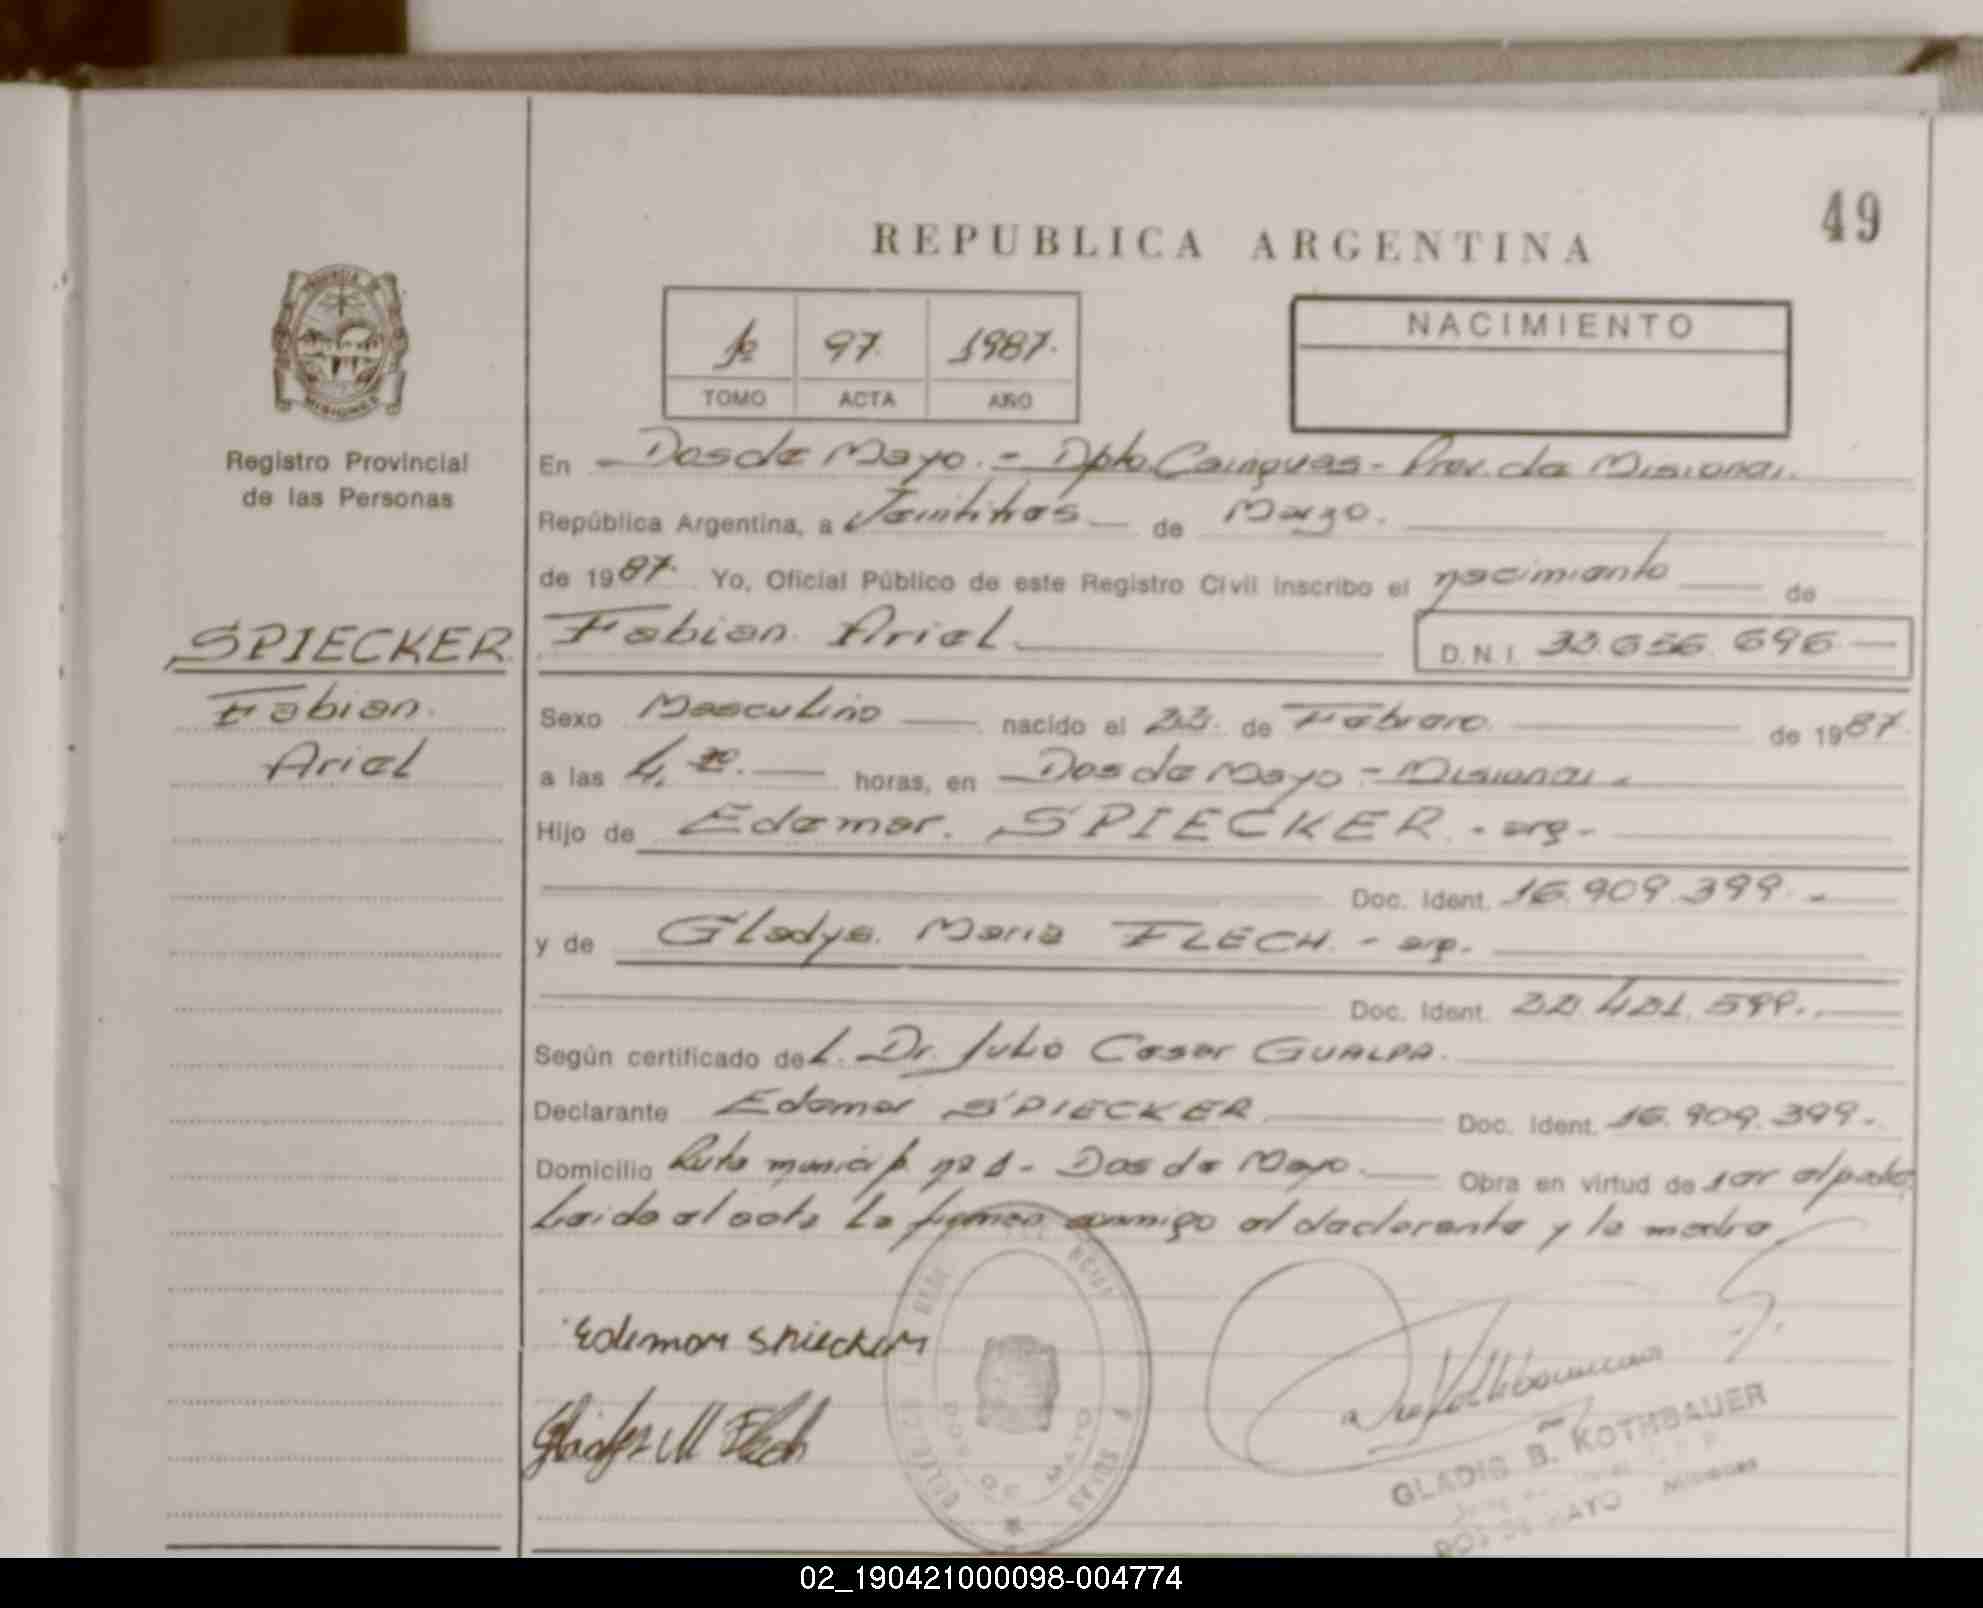 49
REPUBLICA ARGENTINA
1º 97. 1987.
TOMO ACTA AÑO
NACIMIENTO
Registro Provincial
de las Personas
En Dos de Mayo. - Dpto. Cainguas - Prov. de Misiones.
República Argentina, a Veintitres de Marzo.
de 1987. Yo, Oficial Público de este Registro Civil inscribo el nacimiento de
SPIECKER
Fabian.
Ariel
Fabian Ariel D.N.I. 33.656.696
Sexo Masculino nacido el 22. de Febrero. de 1987.
a las 4. horas, en Dos de Mayo - Misiones.
Hijo de Edemar. SPIECKER. - arg-
Doc. Ident. 16.909.399. -
y de Gladys. Maria FLECH. - arg.
Doc. Ident. 22.421.599.
Según certificado del. Dr. Julio Cesar GUALPA.
Declarante Edemar SPIECKER Doc. Ident. 16.909.399.
Domicilio Ruta municip. nº 1 - Dos de Mayo. Obra en virtud de ser el padre
Leida el acta la firman conmigo el declarante y la madre.
Edemar Spiecker
Gladys M Flech
DOS DE MAYO
GLADIS B. KOTHBAUER
DOS DE MAYO Misiones
02_190421000098-004774